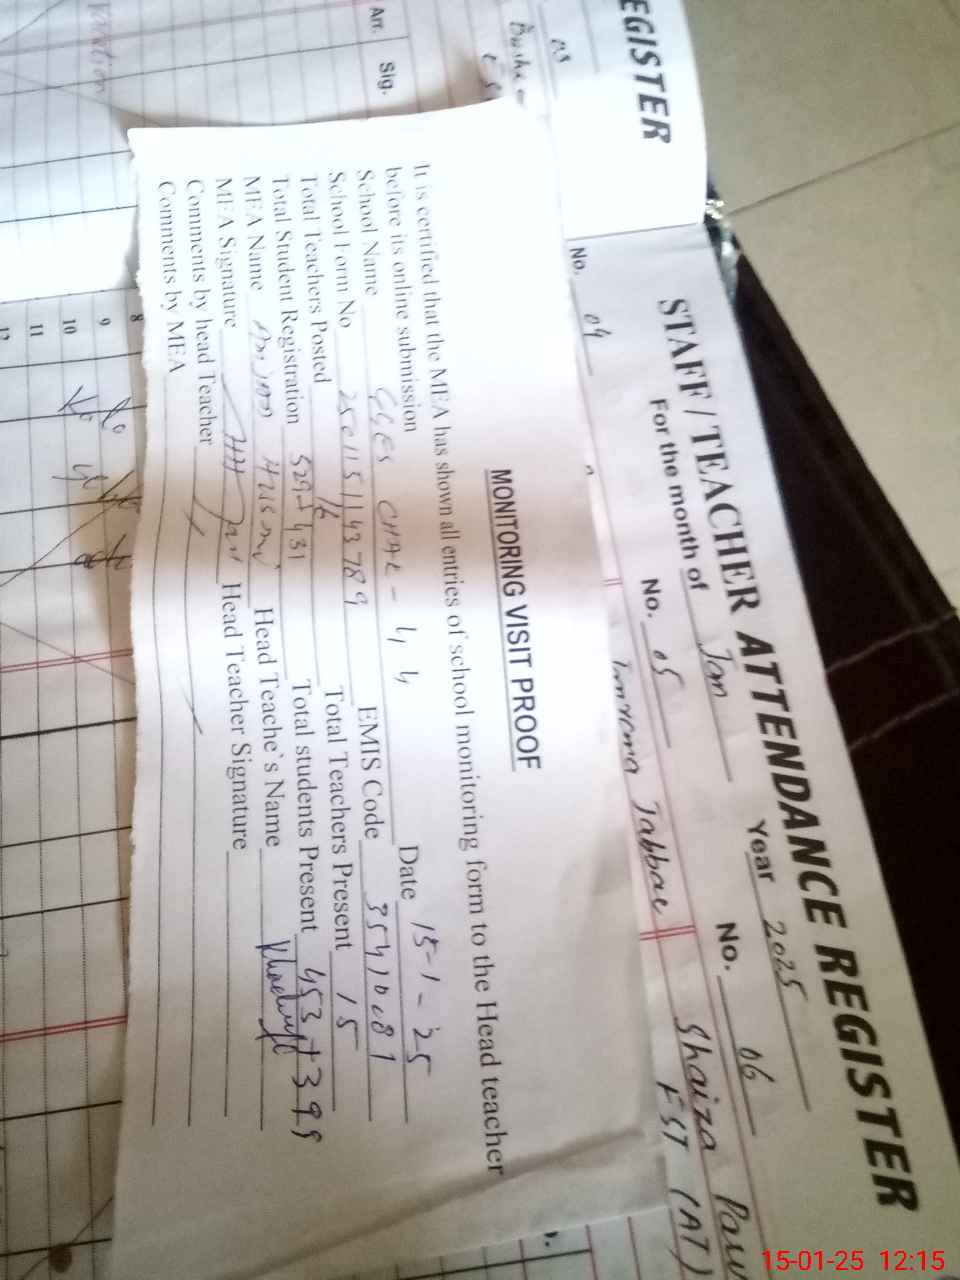 EGISTER
Arr. Sig.
03
STAFF / TEACHER ATTENDANCE REGISTER
For the month of Jan Year 2025
No. 04 No. 05 No. 06
Jabbar Shaiza
EST (AT)
MONITORING VISIT PROOF
It is certified that the MEA has shown all entries of school monitoring form to the Head teacher
before its online submission Date 15-1-25
School Name GGES CHAK - 44 EMIS Code 35410081
School Form No 2501151143789 Total Teachers Present 15
Total Teachers Posted 16 Total students Present 453+399
Total Student Registration 529+431
MEA Name Head Teache`s Name
MEA Signature Head Teacher Signature
Comments by head Teacher
Comments by MEA
8
9
10
11
12
15-01-25 12:15